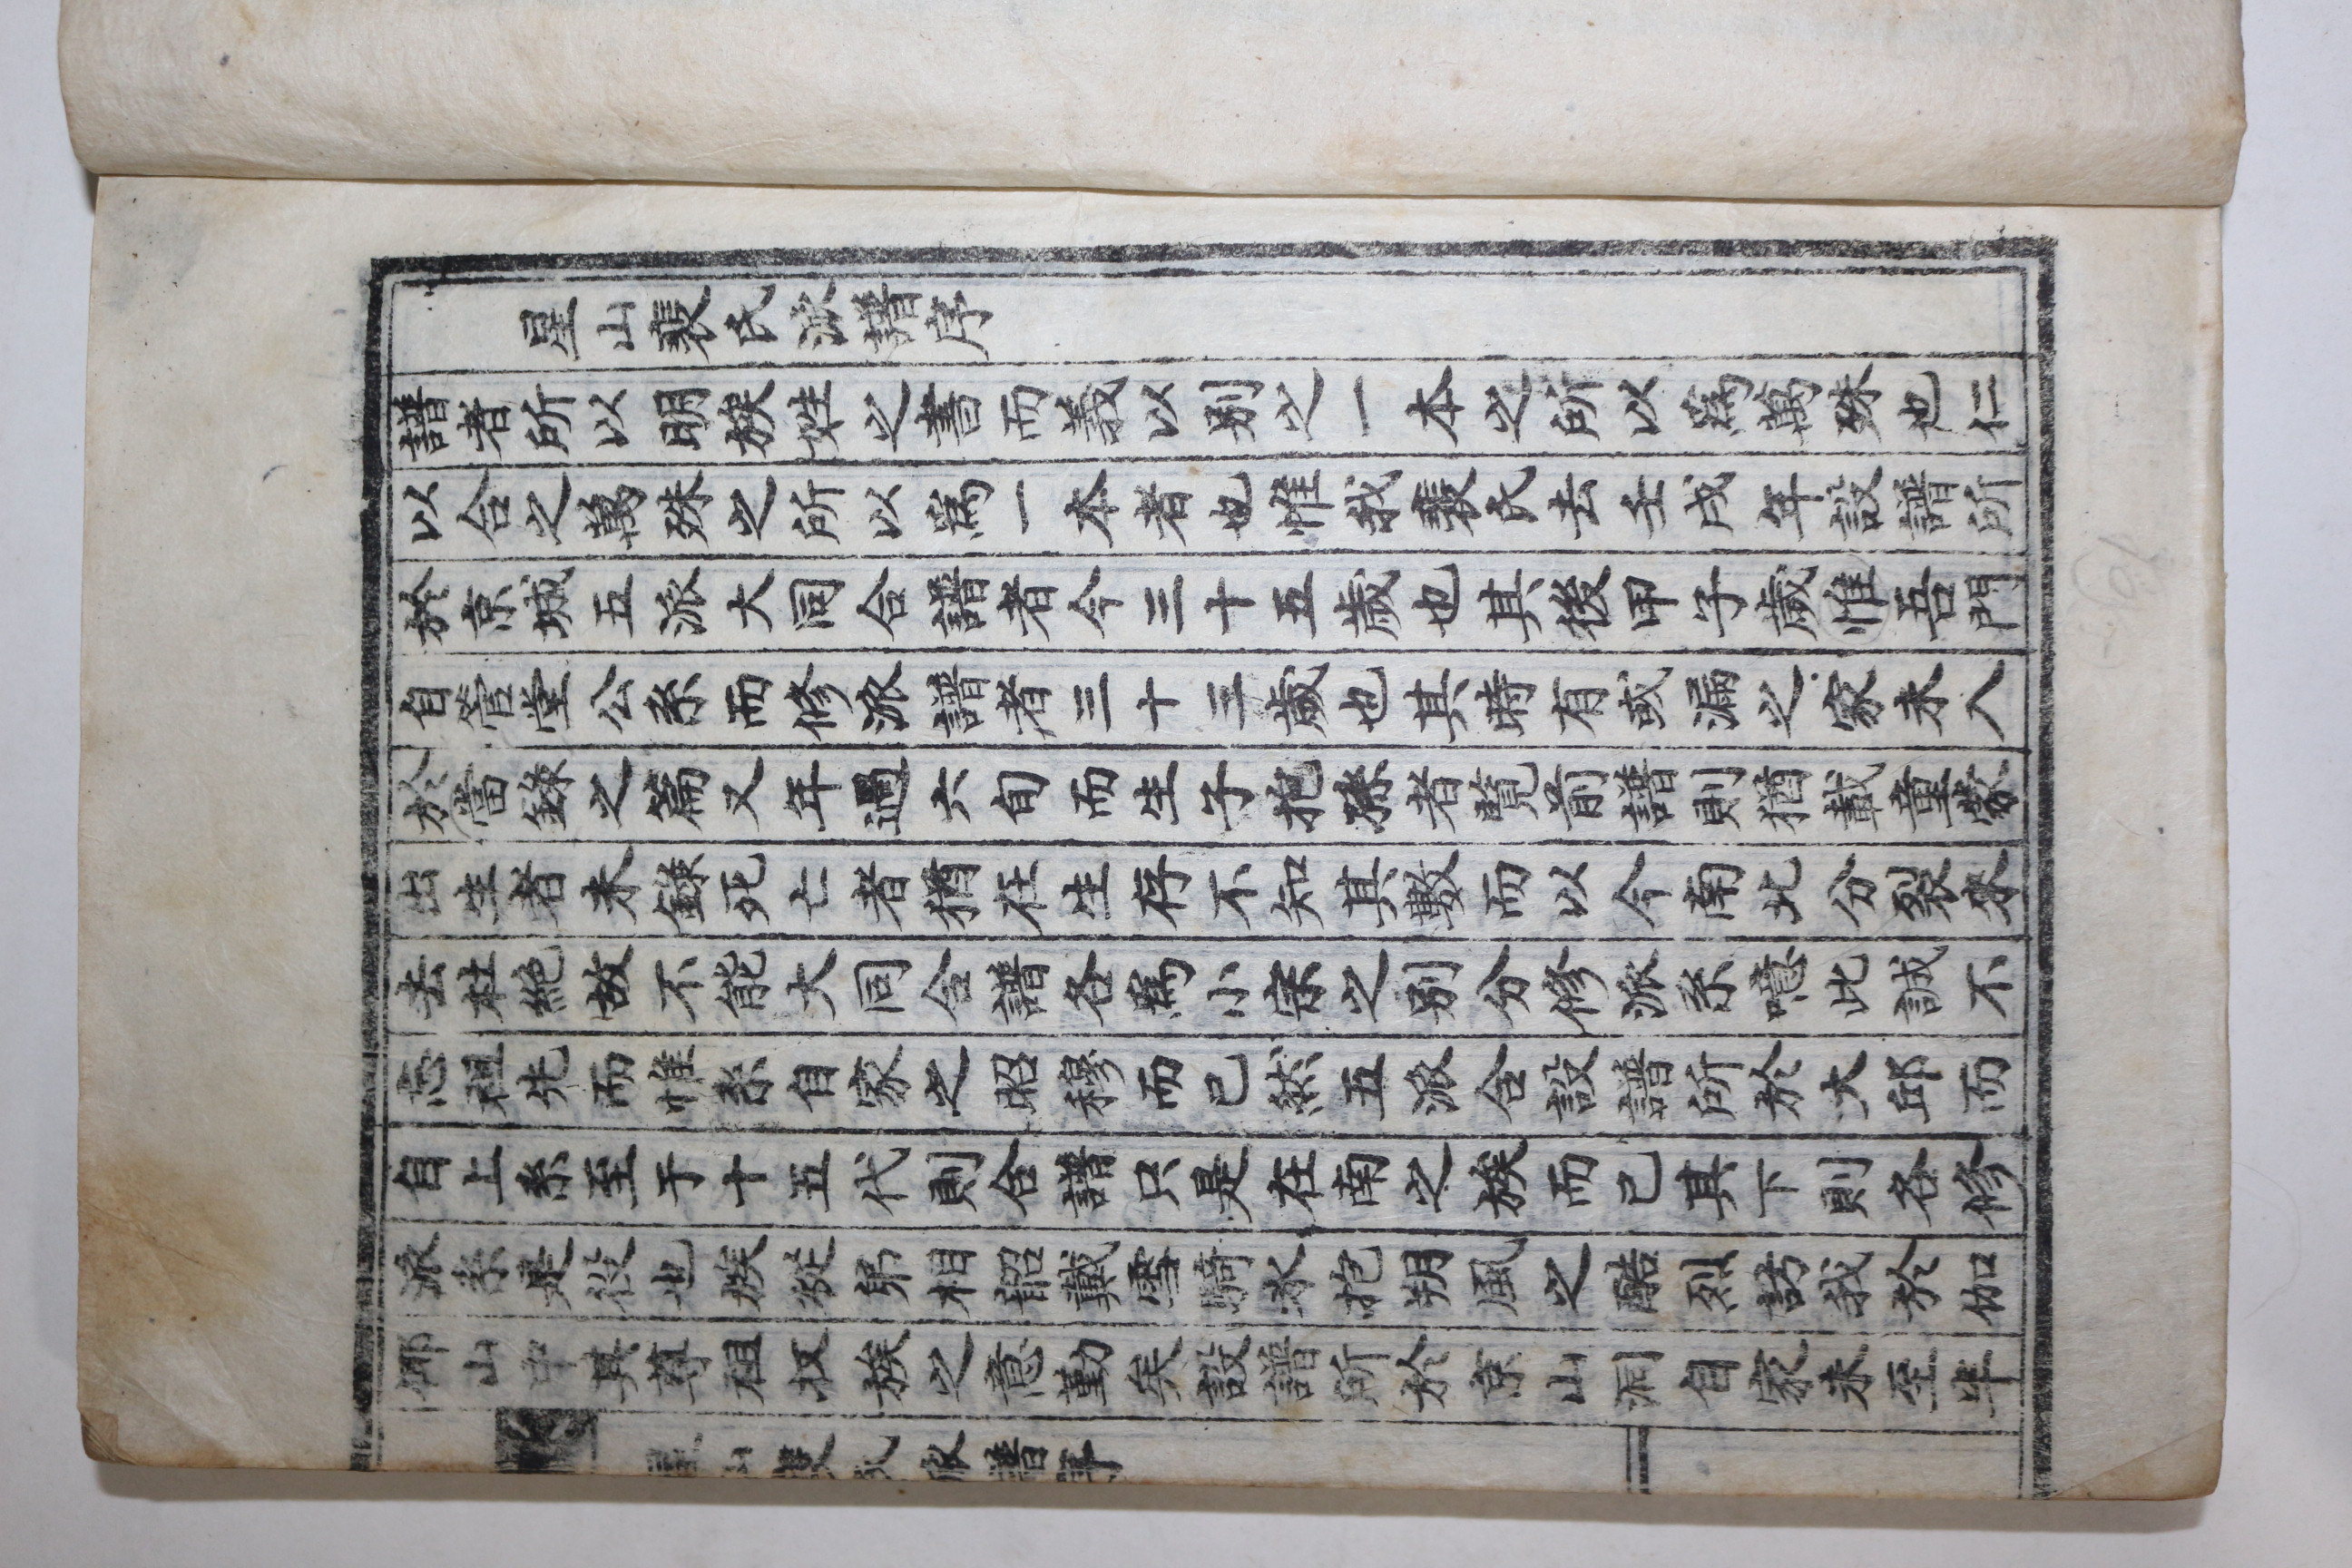 星山裴氏派譜序
譜者所以明族姓之書而義以别之一本之所以爲萬殊也仁
以合之萬殊之所以爲一本者也惟我裴氏去壬戌年設譜所
於京城五派大同合譜者今三十五歲也其後甲子歲惟吾門
自管堂公系而修派譜者三十三歲也其時有或漏之家未入
於當錄之篇又年過六旬而生子抱孫者覽前譜則猶載童蒙
出生者未錄死亡者猶在生存不知其數而以今南北分裂來
去杜絶故不能大同合譜各爲小宗之别分修派系噫此誠不
忘祖先而惟系自家之昭穆而已然五派合設譜所於大邱而
自上系至于十五代則合譜只是在南之族而已其下則各修
派系是役也族從弟相韶戴雪騎氷抱朔風之酷烈訪我於伽
倻山中其尊祖收族之意勤矣設譜所於京山洞自家未至半
星山裴氏派譜序